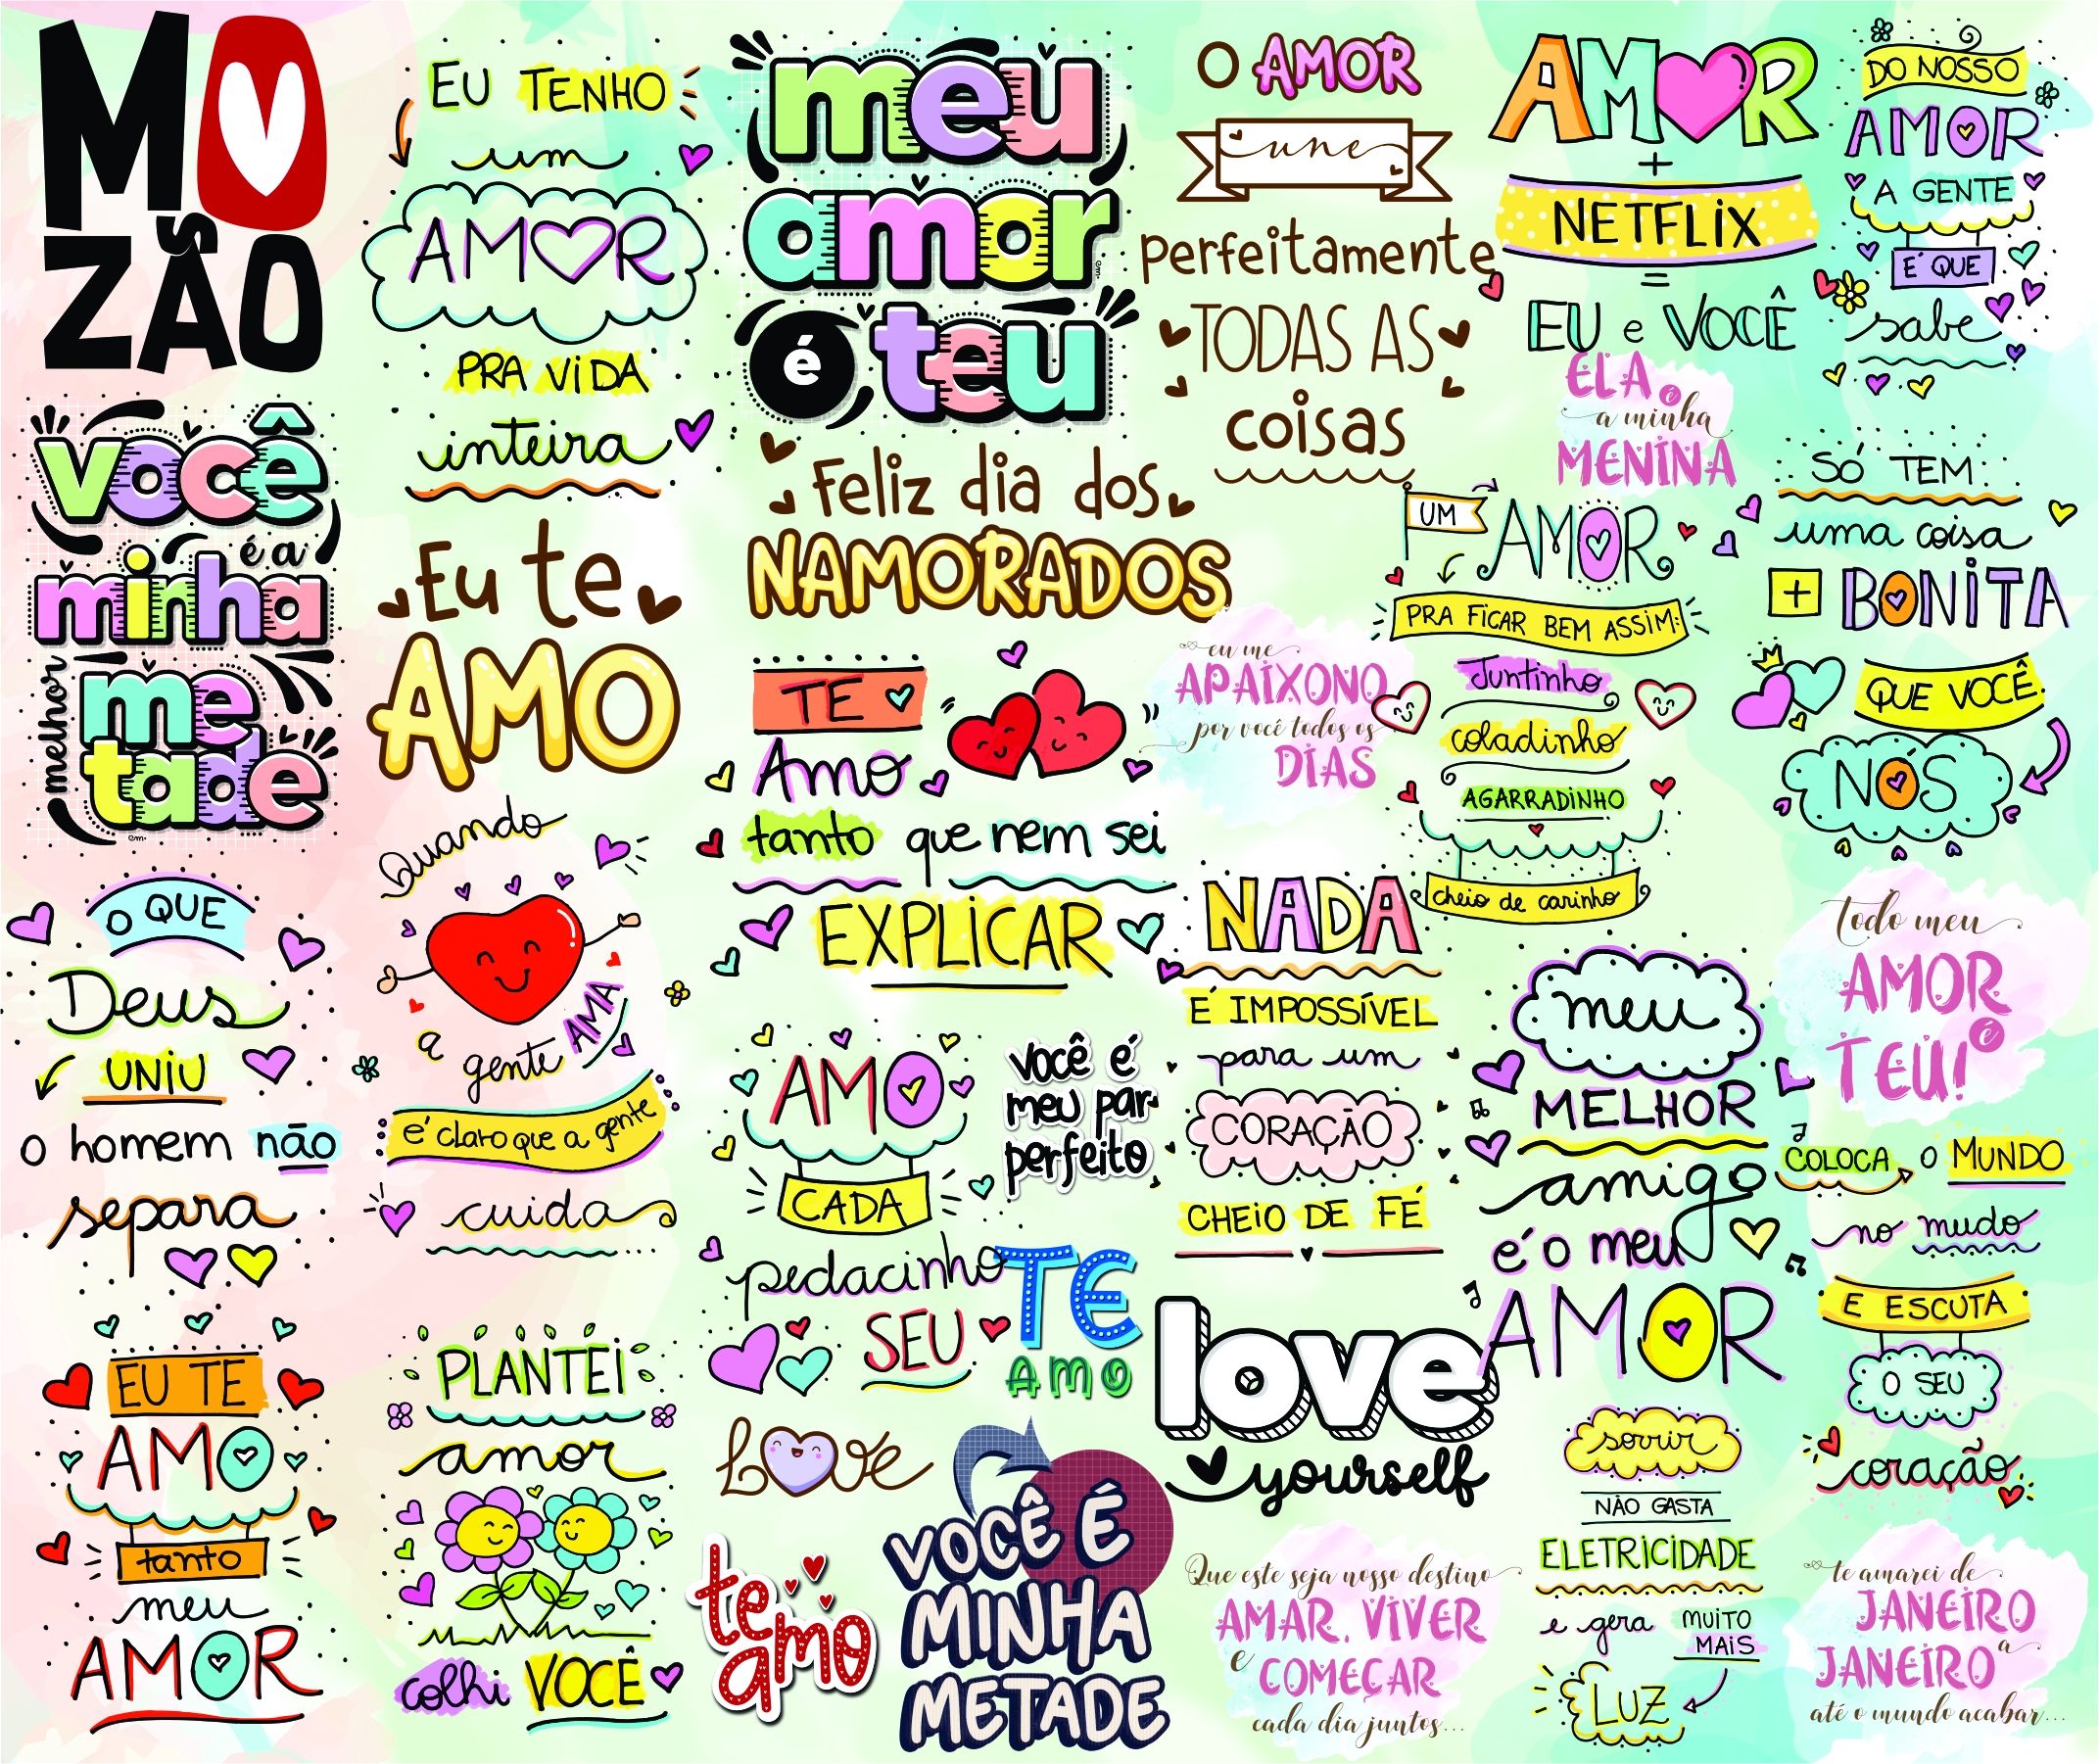 MO
ZÃO
você
é a
minha
melhor
me
tade
O QUE
Deus
UNIU
o homem não
separa
EU TE
AMO
tanto
meu
AMOR
EU TENHO
um
AMOR
PRA ViDA
inteira
Eu te
AMO
Quando
a gente AMA
é claro que a gente
cuida
PLANTEi
amor
colhi VOCÊ
meu
amor
é teu
Feliz dia dos
NAMORADOS
TE
Amo
tanto que nem sei
EXPLiCAR
AMO
CADA
pedacinho
SEU
você é
meu par
perfeito
TE
AMO
Love
te
amo
VOCÊ É
MINHA
METADE
O AMOR
une
perfeitamente
TODAS AS
coisas
eu me
APAIXONO
por você todos os
DIAS
NADA
É IMPOSSÍVEL
para um
CORAÇÃO
CHEiO DE FÉ
love
yourself
Que este seja nosso destino
AMAR, VIVER
e COMEÇAR
cada dia juntos...
AMOR
+
NETFLiX
=
EU e VOCÊ
ELA é
a minha
MENINA
UM AMOR
PRA FiCAR BEM ASSiM:
Juntinho
coladinho
AGARRADiNHO
cheio de carinho
meu
MELHOR
amigo
é o meu
AMOR
sorrir
NÃO GASTA
ELETRiCiDADE
e gera MUiTO
MAiS
LUZ
DO NOSSO
AMOR
A GENTE
É QUE
sabe
SÓ TEM
uma coisa
+ BONiTA
QUE VOCÊ
NÓS
todo meu
AMOR
é
TEU!
COLOCA O MUNDO
no mudo
E ESCUTA
O SEU
coração
te amarei de
JANEIRO
a
JANEIRO
até o mundo acabar...